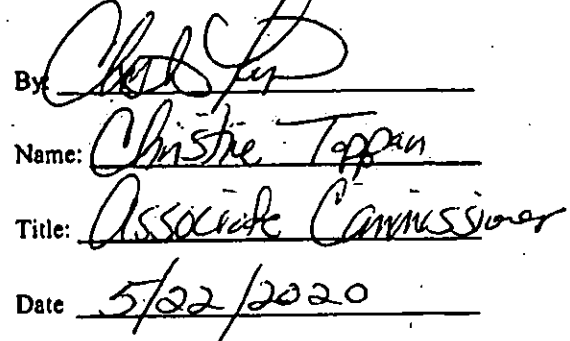 By
Name: Christie Tappan
Title: Associate Commissioner
Date 5/22/2020